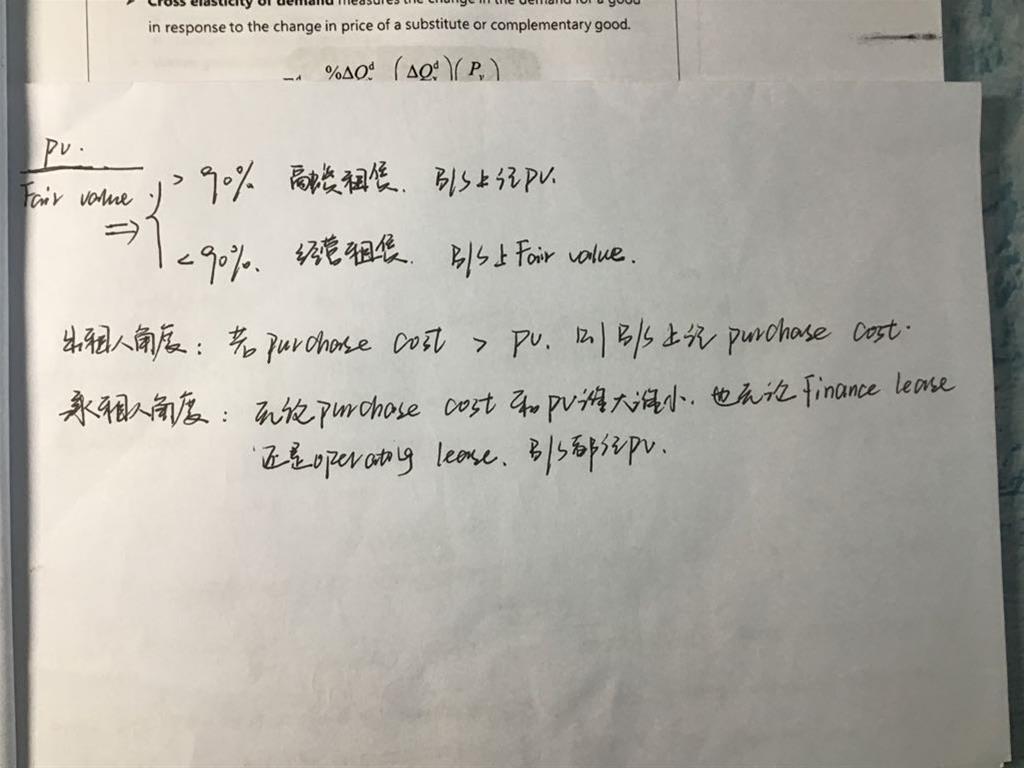 Cross elasticity of demand measures the change in the demand for a good
in response to the change in price of a substitute or complementary good.
%ΔQᵈ (ΔQᵈ)(Pᵧ)
PV.
Fair value
> 90% 融资租赁. B/S上记PV.
⇒
< 90%. 经营租赁. B/S上Fair value.
出租人角度: 若purchase cost > PV. 则B/S上记purchase cost.
承租人角度: 无论purchase cost和PV谁大谁小. 也无论Finance lease
还是operating lease. B/S都记PV.